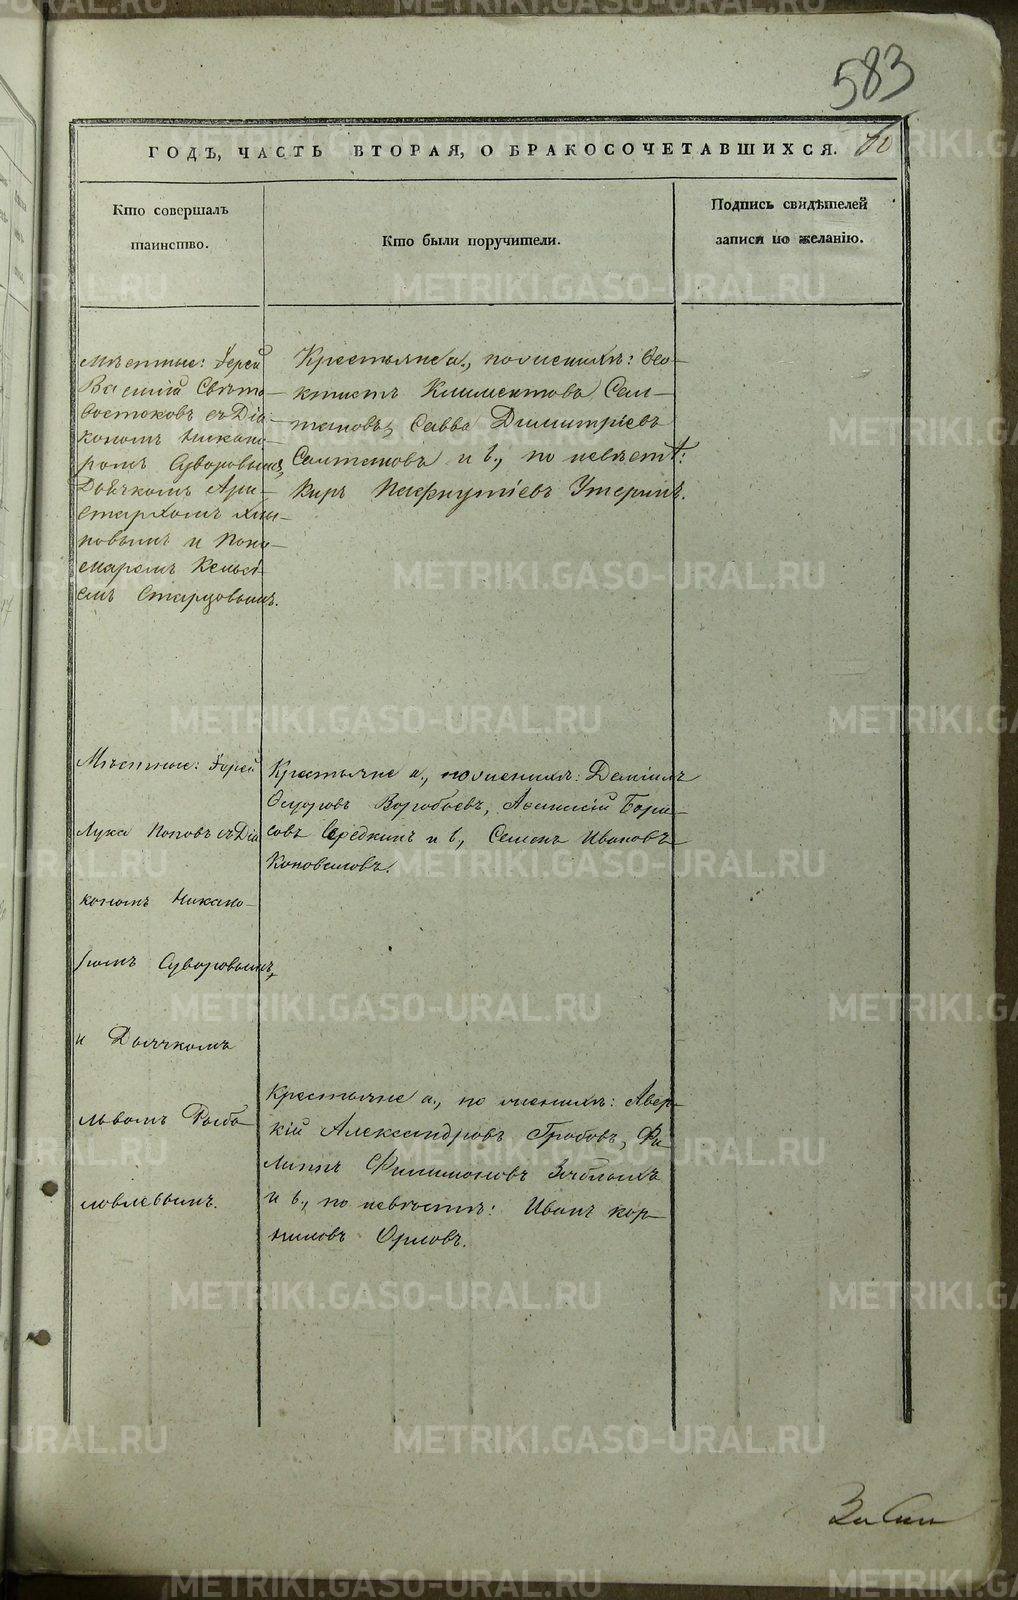 583
ГОДЪ, ЧАСТЬ ВТОРАЯ, О БРАКОСОЧЕТАВШИХСЯ.
Кто совершалъ
таинство.
Кто были поручители.
Подпись свидѣтелей
записи по желанію.
Мѣстные: Іерей
Василій Свѣто-
востоковъ съ Діа-
кономъ Никано-
ромъ Суворовымъ,
Дьячкомъ Ари-
стархомъ
новымъ и Поно-
маремъ
Старцовымъ.
Крестьяне а., по женихѣ: Ѳео-
ктистъ Климентовъ Сал-
тановъ, Савва Димитріевъ
Салтановъ и б., по невѣстѣ:
Киръ Пафнутіевъ Утеринъ.
Мѣстные: Іерей
Лука Поповъ съ Діа
кономъ Никано-
ромъ Суворовымъ,
и Дьячкомъ
Львомъ
Крестьяне а., по женихѣ: Даніилъ
Ѳедоровъ Воробьевъ, Афанасій Бори-
совъ Середкинъ и б., Семенъ Ивановъ
Коноваловъ.
Крестьяне а., по женихѣ: Авер-
кій Александровъ Гробовъ, Фи
липпъ Филимоновъ
и б., по невѣстѣ: Иванъ Кор-
ниловъ Орловъ.
METRIKI.GASO-URAL.RU